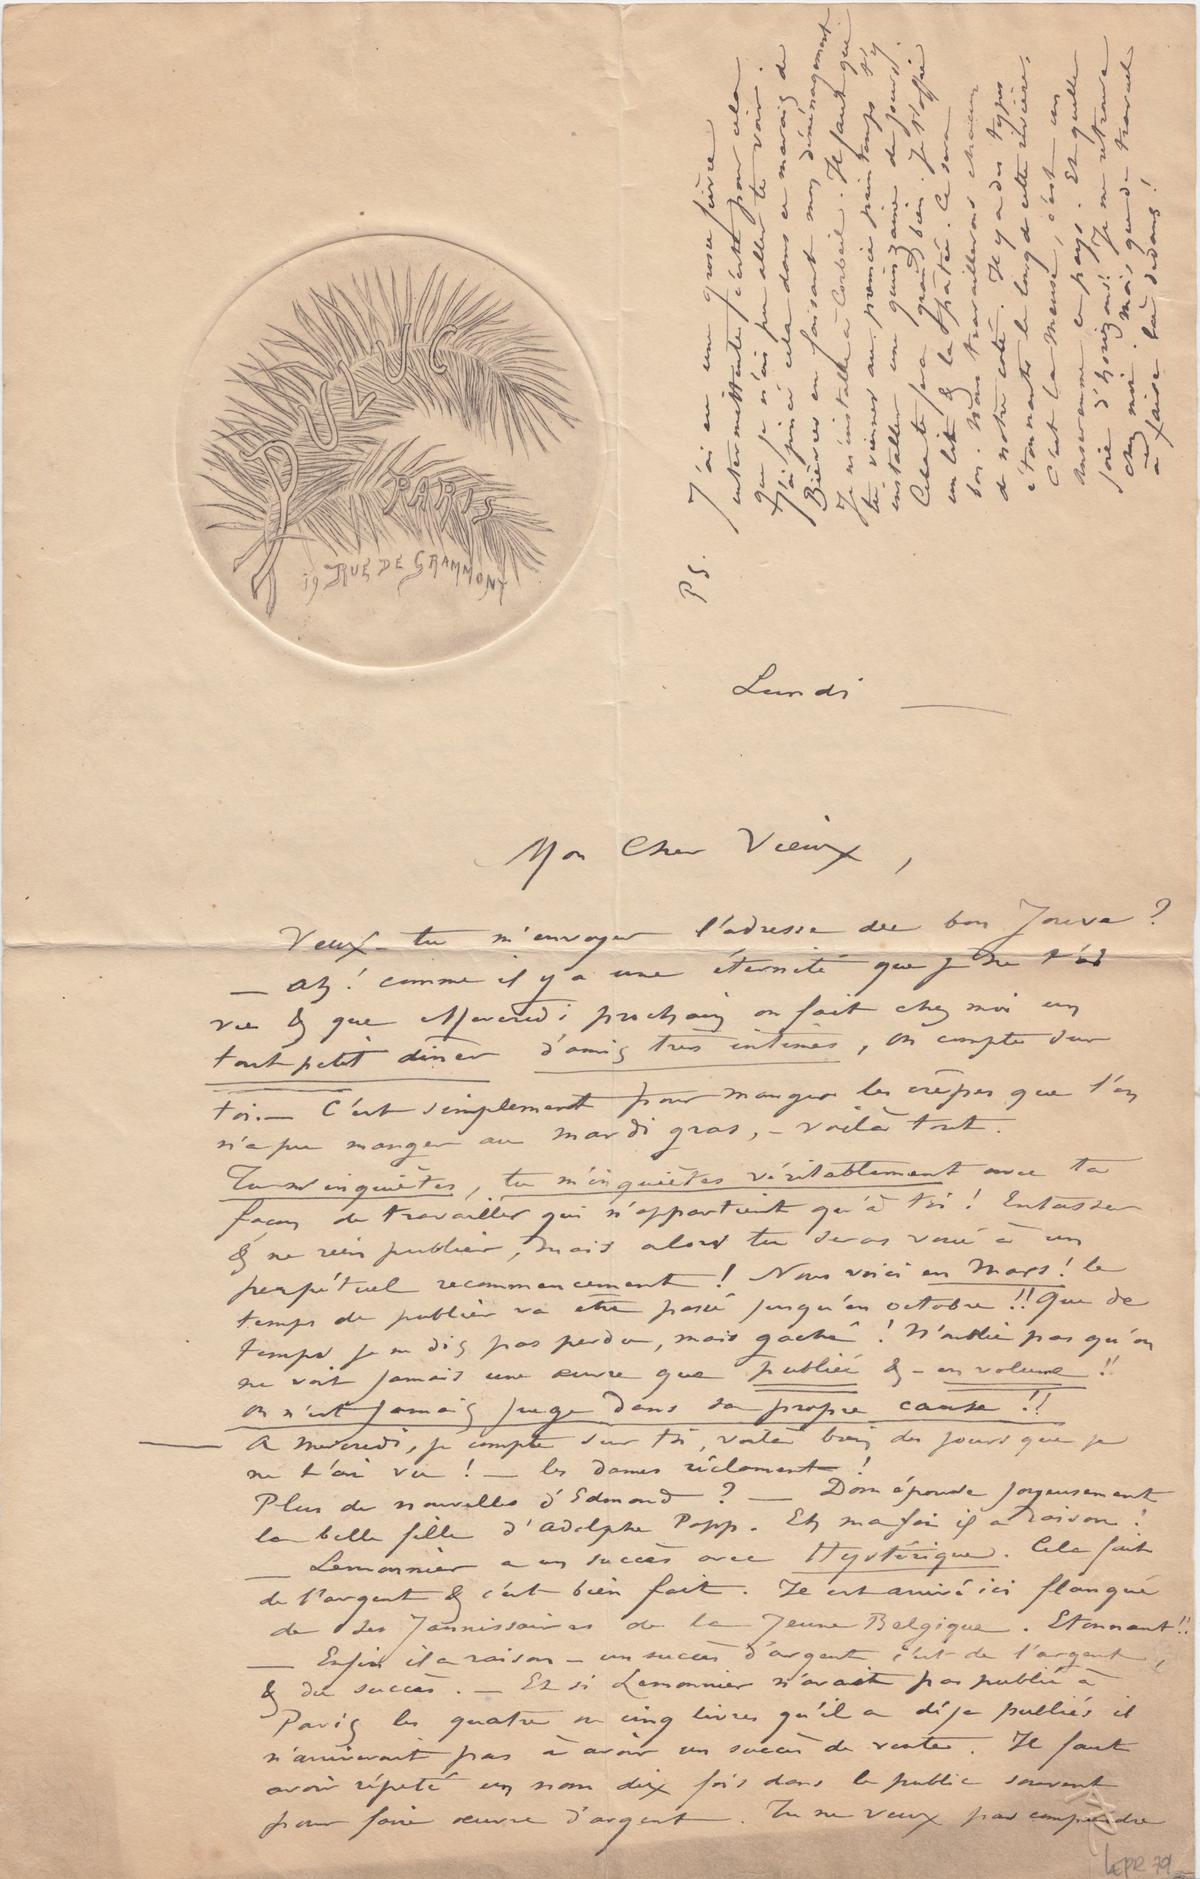 DULUC
PARIS
19 RUE DE GRAMMONT
PS. J'ai eu une grosse fièvre
intermittente c'est pour cela
que je n'ai pu aller te voir.
J'ai pincé cela dans ce marais de
Bièvres en faisant mon déménagement
Je m'installe à Corbeil. Il faut que
tu viennes au premier printemps t'y
installer une quinzaine de jours.
Cela te fera grand bien. Je t'offre
un lit & la pâtée. Ce sera
bon. Nous travaillerons chacun
de notre coté. Il y a des types
étonnants le long de cette rivière.
C'est la Meuse, c'est un
en pays. Et quelle
joie d'horizons! Je me retrouve
chez moi. Mais que de travail
à faire là dedans!
Lundi
Mon Cher Vieux,
Veux-tu m'envoyer l'adresse du bon Jouve?
— Ah! comme il y a une éternité que je ne t'ai
vu & que Mercredi prochain on fait chez moi un
tout petit dîner d'amis très intimes, on compte sur
toi.— C'est simplement pour manger les crêpes que l'on
n'a pu manger au mardi gras, — voilà tout.
Tu m'inquiètes, tu m'inquiètes véritablement avec ta
façon de travailler qui n'appartient qu'à toi! Entasser
& ne rien publier, mais alors tu seras voué à un
perpétuel recommencement! Nous voici en Mars! le
temps de publier va être passé jusqu'en octobre!! Que de
temps je ne dis pas perdu, mais gaché! N'oublie pas qu'on
ne voit jamais une œuvre que publiée & - en volume!!
On n'est jamais juge dans sa propre cause!!
— A mercredi, je compte sur toi, voilà bien des jours que je
ne t'ai vu! — les dames réclament!
Plus de nouvelles d'Edmond? — Dom épouse joyeusement
la belle fille d'Adolphe Popp. Eh ma foi il a raison!
— Lemonnier a un succès avec Hystérique. Cela fait
de l'argent & c'est bien fait. Il est arrivé ici flanqué
de ses Jannissaires de la Jeune Belgique. Etonnant!!
— Enfin il a raison — un succès d'argent c'est de l'argent,
& du succès. — Et si Lemonnier n'avait pas publié à
Paris les quatre ou cinq livres qu'il a déjà publiés il
n'arriverait pas à avoir un succès de vente. Il faut
avoir répété un nom dix fois dans le public souvent
pour faire œuvre d'argent. Tu ne veux pas comprendre
LEPR 79